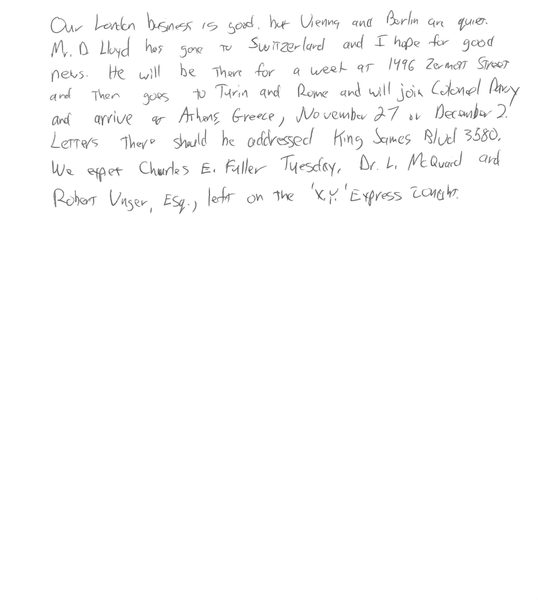 Our London business is good, but Vienna and Berlin are quiet.
Mr. D Lloyd has gone to Switzerland and I hope for good
news. He will be there for a week at 1496 Zermott Street
and then goes to Turin and Rome and will join Colonel Parry
and arrive at Athens, Greece, November 27 or December 2.
Letters there should be addressed King James Blvd 3580.
We expect Charles E. Fuller Tuesday. Dr. L. McQuard and
Robert Unger, Esq., left on the 'X.Y.' Express tonight.